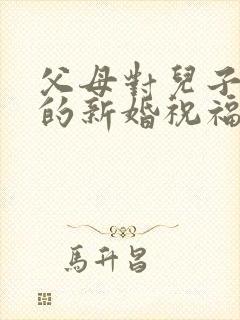 父母對兒子
的新婚祝福
馬升昌